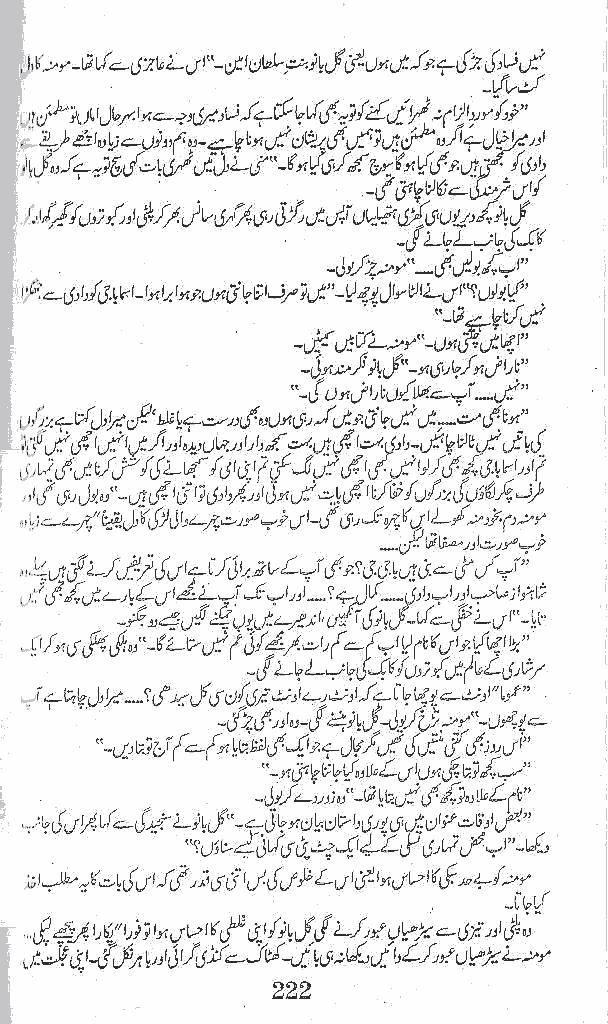 نہیں فساد کی جڑ کی ہے جو کہ میں ہوں یعنی گل بانو بنت سلطان امین۔“ اس نے عاجزی سے کہا تھا۔ مومنہ کا دل
کٹ سا گیا۔
”خود کو مورد الزام نہ ٹھہرائیں کہنے کو تو یہ بھی کہا جاسکتا ہے کہ فساد میری وجہ سے ہوا بہرحال اماں تو مطمئن ہیں
اور میرا خیال ہے اگر وہ مطمئن ہیں تو ہمیں بھی پریشان نہیں ہونا چاہیے۔ وہ ہم دونوں سے زیادہ اچھے طریقے سے
دادی کو سمجھتی ہیں جو بھی ہو گا سوچ سمجھ کر ہی کیا ہو گا۔“ منی نے دل میں ٹھہری بات کہی سچ تو یہ ہے کہ وہ گل بانو
کو اس شرمندگی سے نکالنا چاہتی تھی۔
گل بانو کچھ دیر یوں ہی کھڑی ہتھیلیاں آپس میں رگڑتی رہی پھر گہری سانس بھر کر پلٹی اور کبوتروں کو گھیر گھار کر
کابک کی جانب لے جانے لگی۔
”اب کچھ بولیں بھی ....“ مومنہ چڑ کر بولی۔
”کیا بولوں؟“ اس نے الٹا سوال پوچھ لیا۔ ”میں تو صرف اتنا جانتی ہوں جو ہوا برا ہوا۔ اسما باجی کو دادی سے جھگڑا
نہیں کرنا چاہیے تھا۔“
”اچھا میں چلتی ہوں۔“ مومنہ نے کتابیں سمیٹیں۔
”ناراض ہو کر جا رہی ہو۔“ گل بانو فکر مند ہوئی۔
”نہیں ..... آپ سے بھلا کیوں ناراض ہوں گی۔“
”ہونا بھی مت ..... میں نہیں جانتی جو میں کہہ رہی ہوں وہ بھی درست ہے یا غلط لیکن میرا دل کہتا ہے بزرگوں
کی باتیں نہیں ٹالنا چاہئیں۔ دادی بہت اچھی ہیں بہت سمجھ دار اور جہاں دیدہ اور اگر میں انہیں اچھی نہیں لگتی تو
تم اور اسما باجی کچھ بھی کر لو انہیں کبھی اچھی نہیں لگ سکتی تم اپنی امی کو سمجھانے کی کوشش کرنا میں بھی تمہاری
طرف چکر لگاؤں گی بزرگوں کو خفا کرنا اچھی بات نہیں ہوتی اور پھر دادی تو اتنی اچھی ہیں۔“ وہ بول رہی تھی اور
مومنہ دم بخود منہ کھولے اس کا چہرہ تک رہی تھی۔ اس خوب صورت چہرے والی لڑکی کا دل یقیناً چہرے سے زیادہ
خوب صورت اور مصفا تھا لیکن.....
”آپ کس مٹی سے بنی ہیں باجی جی؟ جو بھی آپ کے ساتھ برائی کرتا ہے اس کی تعریفیں کرنے لگتی ہیں پہلے وہ
شاہنواز صاحب اور اب دادی ...... کمال ہے؟ .... اور اب تک آپ نے مجھے اس کے بارے میں کچھ بھی نہیں
بتایا۔“ اس نے خفگی سے کہا۔ گل بانو کی آنکھیں اندھیرے میں یوں چمکنے لگیں جیسے دو جگنو۔
”بڑا اچھا کیا جو اس کا نام لیا اب کم سے کم رات بھر مجھے کوئی غم نہیں ستائے گا۔“ وہ ہلکی پھلکی سی ہو کر ایک
سرشاری کے عالم میں کبوتروں کو کابک کی جانب لے جانے لگی۔
”عموماً اونٹ سے پوچھا جاتا ہے کہ اونٹ رے اونٹ تیری کون سی کل سیدھی؟ ..... میرا دل چاہتا ہے آپ
سے پوچھوں۔“ مومنہ تڑخ کر بولی۔ گل بانو ہنسنے لگی۔ وہ اور بھی چڑ گئی۔
”اس روز بھی کتنی منتیں کی تھیں مگر مجال ہے جو ایک بھی لفظ بتایا ہو کم سے کم آج تو بتا دیں۔“
”سب کچھ تو بتا چکی ہوں اس کے علاوہ کیا جاننا چاہتی ہو۔“
”نام کے علاوہ تو کچھ بھی نہیں بتایا تھا۔“ وہ زور دے کر بولی۔
”بعض اوقات عنوان میں ہی پوری داستان بیان ہو جاتی ہے۔“ گل بانو نے سنجیدگی سے کہا پھر اس کی جانب
دیکھا۔ ”اب محض تمہاری تسلی کے لیے ایک چٹ پٹی سی کہانی کیسے سناؤں؟“
مومنہ کو بے حد سبکی کا احساس ہوا یعنی اس کے خلوص کی بس اتنی سی قدر تھی کہ اس کی بات کا یہ مطلب اخذ
کیا جاتا۔
وہ پلٹی اور تیزی سے سیڑھیاں عبور کرنے لگی گل بانو کو اپنی غلطی کا احساس ہوا تو فوراً پکارا پھر پیچھے لپکی...
مومنہ نے سیڑھیاں عبور کر کے دائیں دیکھا نہ ہی بائیں۔ کھٹاک سے کنڈی گرائی اور باہر نکل گئی۔ اپنی عجلت میں
222